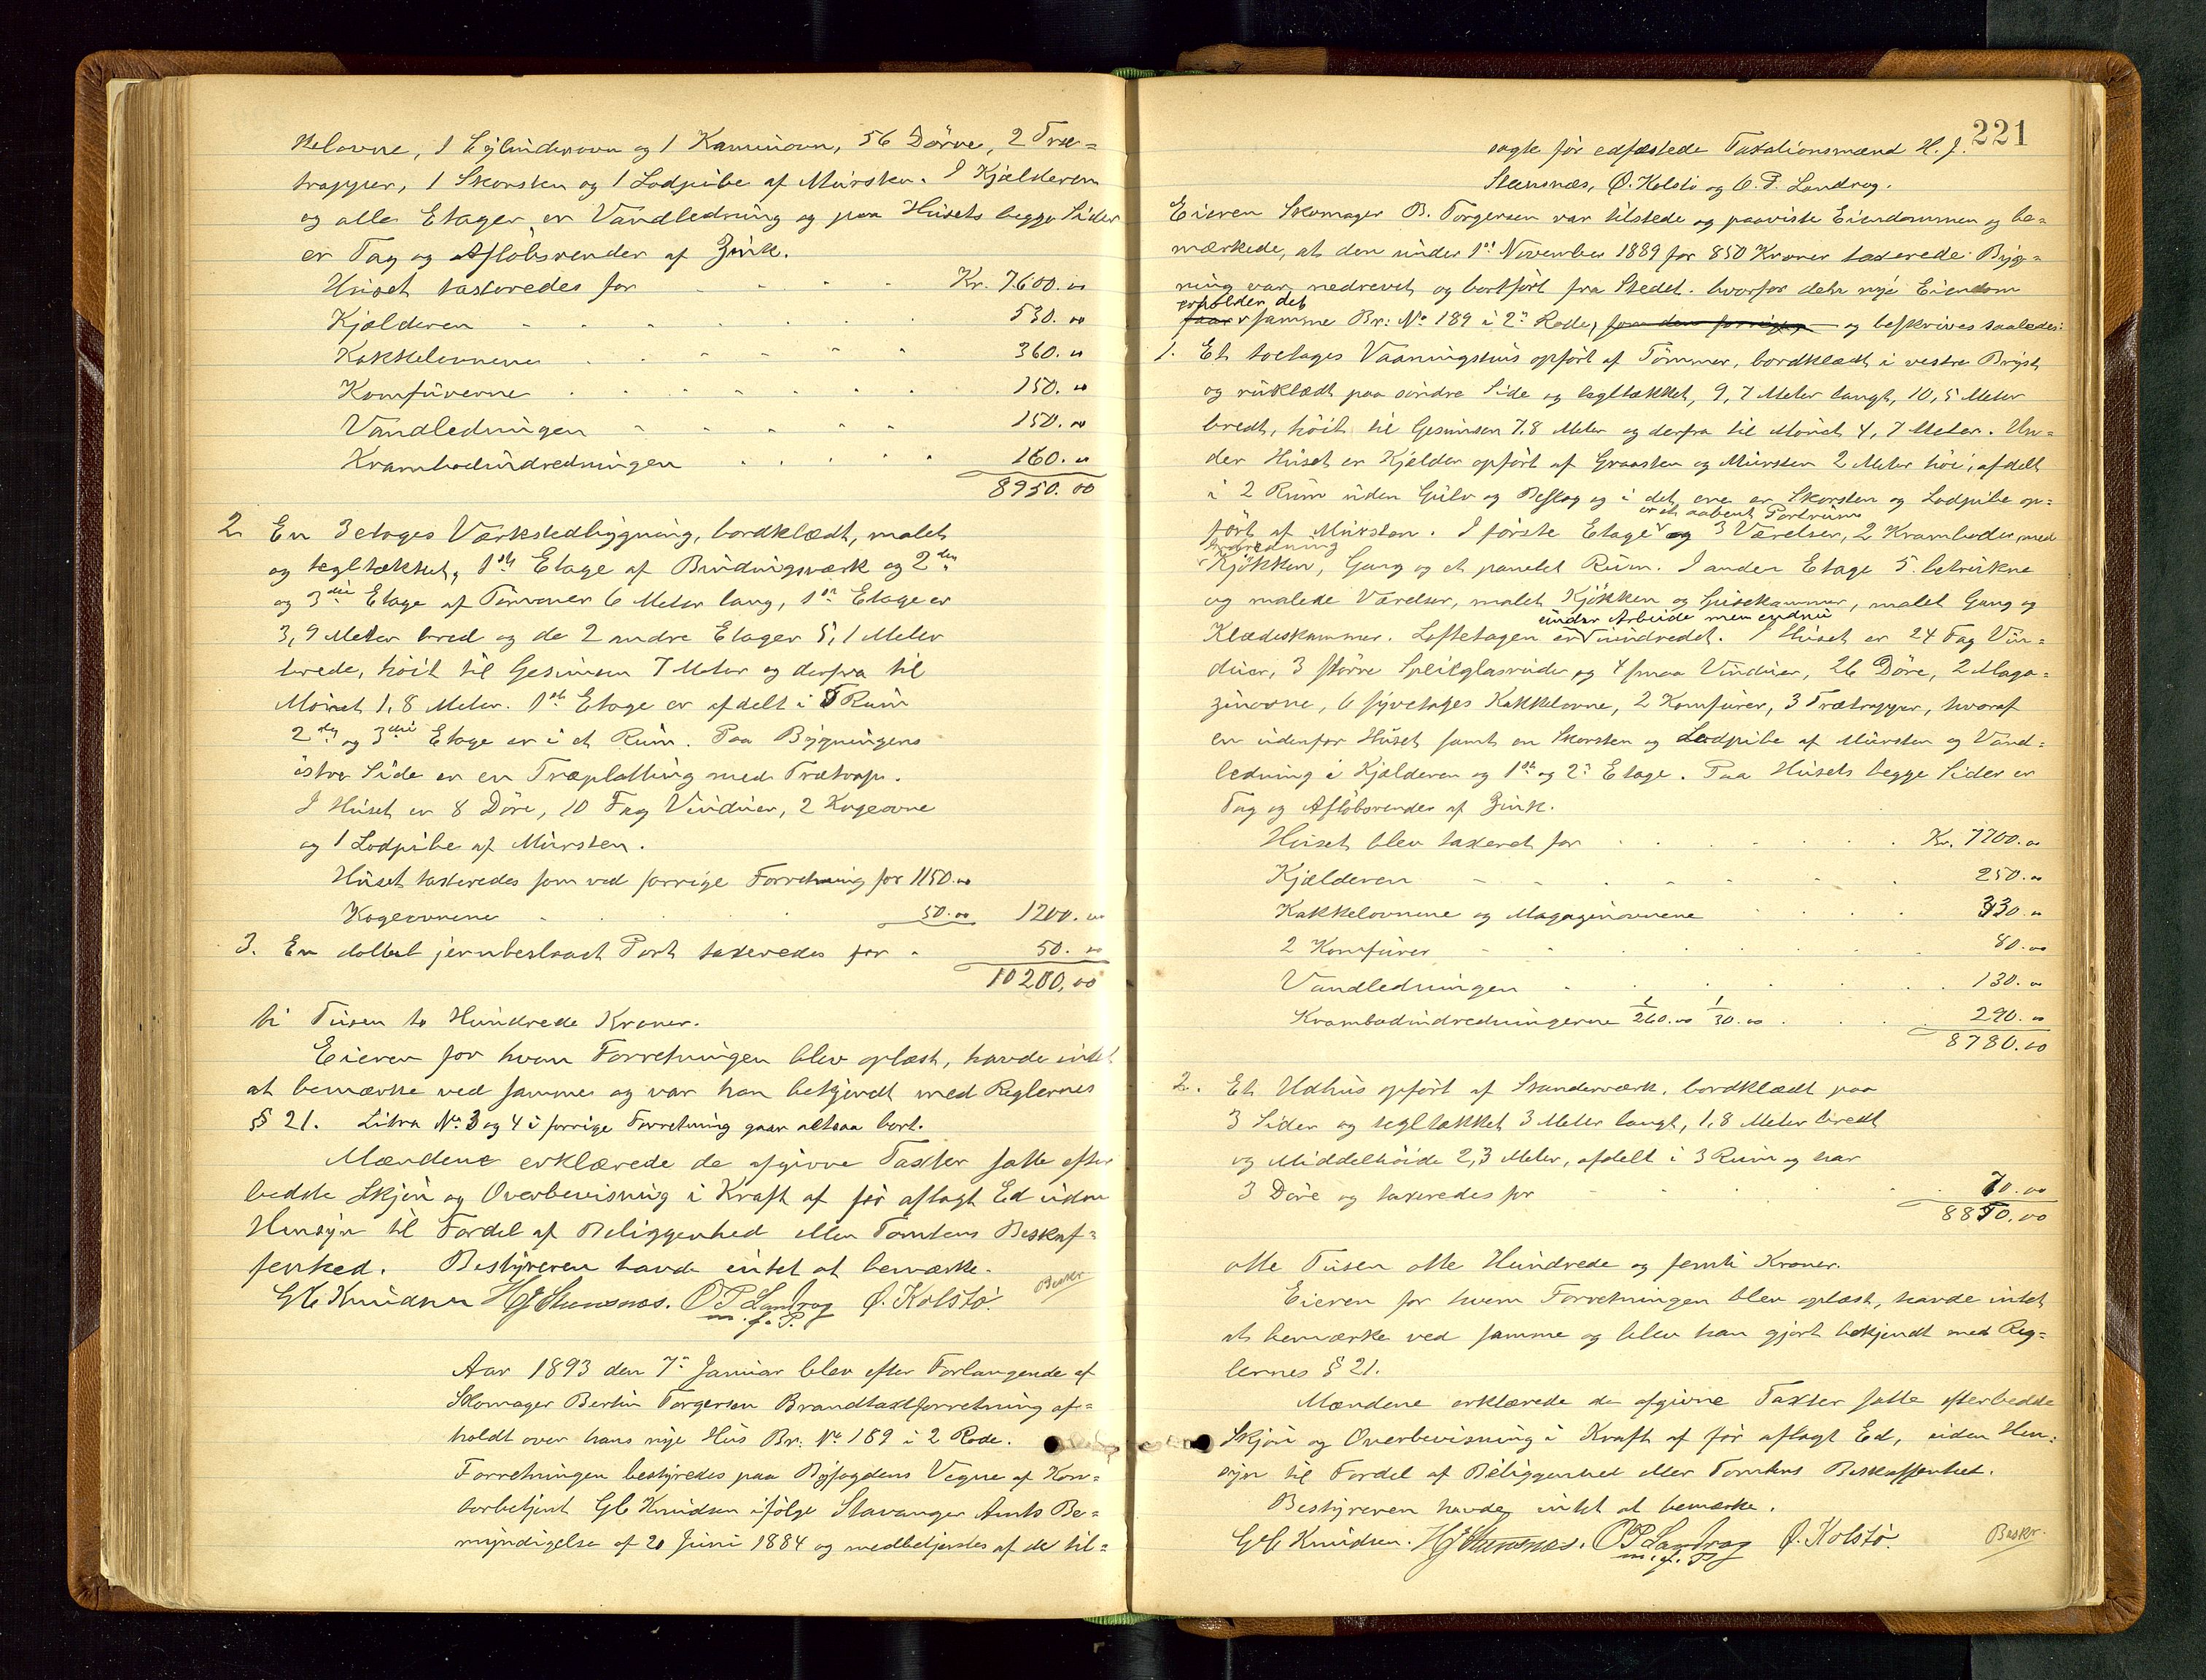 kelovne, 1 Cylinderovn og 1 Kaminovn, 56 Dörre, 2 Træ=
trapper, 1 Skorsten og 1 Lodpibe af Mursten. I Kjælderen
og alle Etager er Vandledning og paa Husets begge Sider
er Tag og Afløbsrender af Zink.
Huset taxeredes for Kr. 7600.00
Kjælderen 530.00
Kakkelovnene 360.00
Komfurerne 150.00
Vandledningen 150.00
Krambodindredningen 160.00
8950.00
2. En 3 etages Værkstedbygning, bordklædt, malet
og tegltækket, 1ste Etage af Bindingsværk og 2den
og 3die Etage af Tømmer 6 Meter lang, 1ste Etage er
3,9 Meter bred og de 2 andre Etager 5,1 Meter
brede, höit til Gesimsen 7 Meter og derfra til
Mönet 1,8 Meter. 1ste Etage er afdelt i Rum
2den og 3die Etage er i et Rum. Paa Bygningens
östre Side er en Træplatting med Trætrap.
I Huset er 8 Döre, 10 Fag Vinduer, 2 Kogeovne
og 1 Lodpibe af Mursten.
Huset taxeredes som ved forrige Forretning for 1150.00
Kogeovnene 50.00 1200.00
3. En dobbelt jernbeslaaet Port taxeredes for 50.00
10200,00
ti Tusen to Hundrede Kroner.
Eieren for hvem Forretningen blev oplæst, havde intet
at bemærke ved samme og var han bekjendt med Reglernes
§ 21. Litra No. 3 og 4 i forrige Forretning gaar altsaa bort.
Mændene erklærede de afgivne Taxter satte efter
bedste Skjön og Overbevisning i Kraft af för aflagt Ed uden
Hensyn til Fordel af Beliggenhed eller Tomtens Beskaf=
fenhed. Bestyreren havde intet at bemærke.
Gb Knudsen H J Stensnæs. O P Landrog Ø. Kolstö. Beskr
m. f. P.
Aar 1893 den 7de Januar blev efter Forlangende af
Skomager Bertin Torgersen Brandtaxtforretning af=
holdt over hans nye Hus Br. No 189 i 2 Rode.
Forretningen bestyredes paa Byfogdens Vegne af Kon=
torbetjent Gb Knudsen ifölge Stavanger Amts Be=
myndigelse af 20 Juni 1884 og medbetjentes af de til=
221
sagte för edfæstede Taxationsmænd H. J.
Stensnæs, Ø. Kolstö og O. P. Landrog.
Eieren Skomager B. Torgersen var tilstede og paaviste Eiendommen og be=
mærkede, at den under 1ste November 1889 for 850 Kroner taxerede Byg=
ning var nedrevet og bortfört fra Stedet. hvorfor dette nye Eiendom
erholder det
faar samme Br: No 189 i 2den Rode, som den forrige og beskrives saaledes:
1. Et toetages Vaaningshus opfört af Tömmer, bordklædt i vestre Bryst
og rukladt paa söndre Side og tegltækket, 9,7 Meter langt, 10,5 Meter
bredt, höit til Gesimsen 7,8 Meter og derfra til Mönet 4,7 Meter. Un=
der Huset er Kjelder opfört af Graasten og Mursten 2 Meter höi, afdelt
i 2 Rum uden Gulv og Beslag og i det ene er Skorsten og Lodpibe op=
er et aabent Portrum
fört af Mursten. I förste Etage og 3 Værelser, 2 Kramboder med
Indredning
Kjökken, Gang og et panelet Rum. I anden Etage 5 betrukne
og malede Værelser, malet Kjökken og Spisekammer, malet Gang og
under Arbeide men endnu
Klædeskammer. Loftetagen er uindredet. I Huset er 24 Fag Vin=
duer, 3 större Speilglasruder og 4 smaa Vinduer, 26 Döre, 2 Maga=
zinovne, 6 fyretages Kakkelovne, 2 Komfurer, 3 Trætrapper, hvoraf
en udenfor Huset samt en Skorsten og Lodpibe af Mursten og Vand=
ledning i Kjælderen og 1ste og 2den Etage. Paa Husets begge Sider er
Tag og Aflöbsrender af Zink.
Huset blev taxeret for Kr. 7700.00
Kjælderen 250.00
Kakkelovnene og Magazinovnene 330.00
2 Komfurer 80.00
Vandledningen 130.00
Krambodindredningerne 1/260.00 1/30.00 290.00
8780.00
2. Et Udhus opfört af Standerværk, bordklædt paa
3 Sider og tegltækket 3 Meter langt, 1,8 Meter bredt
og Middelhöide 2,3 Meter, afdelt i 3 Rum og har
3 Döre og taxeredes for 70.00
8850.00
otte Tusen otte Hundrede og femti Kroner.
Eieren for hvem Forretningen blev oplæst, havde intet
at bemærke ved samme og blev han gjort bekjendt med Reg=
lernes § 21.
Mændene erklærede de afgivne Taxter satte efter bedste
Skjön og Overbevisning i Kraft af för aflagt Ed, uden Hen=
syn til Fordel af Beliggenhed eller Tomtens Beskaffenhed.
Bestyreren havde intet at bemærke.
Gb Knudsen. H J Stensnæs. O P Landrog Ø. Kolstö. Beskr.
m. f. P.